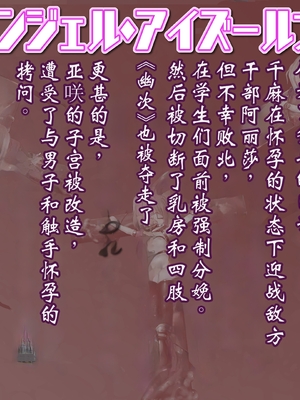 ンジェル・アイズール
千麻在怀孕的状态下迎战敌方
干部阿丽莎，
但不幸败北，
在学生们面前被强制分娩。
然后被切断了乳房和四肢
《幽次》也被夺走了
更甚的是，
亚咲的子宫被改造，
遭受了与男子和触手怀孕的
拷问。